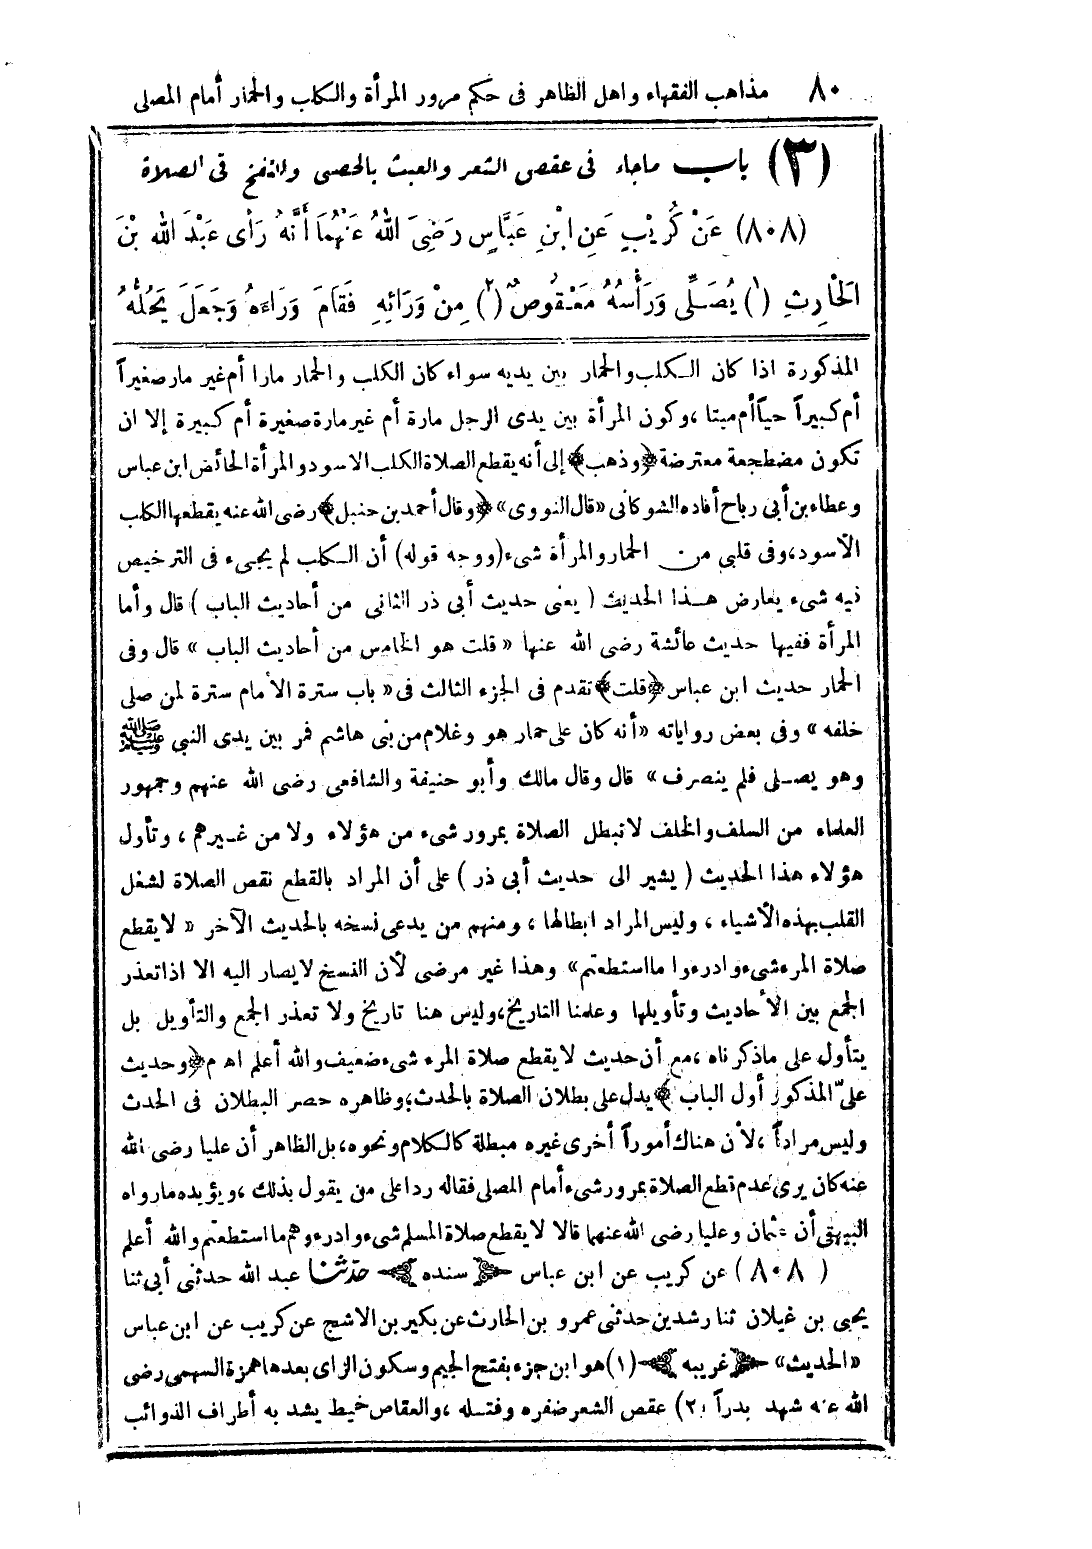 ٨٠ مذاهب الفقهاء واهل الظاهر فى حكم مرور المرأة والكلب والحمار أمام المصلى
(٣) باب ماجاء فى عقص الشعر والعبث بالحصى والنفخ فى الصلاة
(٨٠٨) عَنْ كُرَيْبٍ عَنِ ابْنِ عَبَّاسٍ رَضِىَ اللهُ عَنْهُمَا أَنَّهُ رَأى عَبْدَ الله بْنَ
الْحَارِثِ (١) يُصَلِّى وَرَأْسُهُ مَعْقُوصٌ (٢) مِنْ وَرَائِهِ فَقَامَ وَرَاءَهُ وَجَعَلَ يَحُلُّهُ
المذكورة اذا كان الكلب والحمار بين يديه سواء كان الكلب والحمار مارا أم غير مار صغيراً
أم كبيراً حياً أم ميتا ، وكون المرأة بين يدى الرجل مارة أم غير مارة صغيرة أم كبيرة إلا ان
تكون مضطجعة معترضة ﴿وذهب﴾ إلى أنه يقطع الصلاة الكلب الاسود والمرأة الحائض ابن عباس
وعطاء بن أبى رباح أفاده الشوكانى «قال النووى» ﴿وقال أحمد بن حنبل﴾ رضى الله عنه يقطعها الكلب
الأسود، وفى قلبى من الحمار والمرأة شىء (ووجه قوله) أن الكلب لم يجىء فى الترخيص
فيه شىء يعارض هذا الحديث ( يعنى حديث أبى ذر الثانى من أحاديث الباب ) قال وأما
المرأة ففيها حديث عائشة رضى الله عنها « قلت هو الخامس من أحاديث الباب » قال وفى
الحمار حديث ابن عباس ﴿قلت﴾ تقدم فى الجزء الثالث فى « باب سترة الأمام سترة لمن صلى
خلفه » وفى بعض رواياته «أنه كان على حمار هو وغلام من بنى هاشم فمر بين يدى النبى ﷺ
وهو يصلى فلم ينصرف » قال وقال مالك وأبو حنيفة والشافعى رضى الله عنهم وجمهور
العلماء من السلف والخلف لا تبطل الصلاة بمرور شىء من هؤلاء ولا من غيرهم ، وتأول
هؤلاء هذا الحديث ( يشير الى حديث أبى ذر ) على أن المراد بالقطع نقص الصلاة لشغل
القلب بهذه الأشياء ، وليس المراد ابطالها ، ومنهم من يدعى نسخه بالحديث الآخر « لا يقطع
صلاة المرء شىء وادرءوا ما استطعتم » وهذا غير مرضى لأن النسخ لا يصار اليه الا اذا تعذر
الجمع بين الأحاديث وتأويلها وعلمنا التاريخ، وليس هنا تاريخ ولا تعذر الجمع والتأويل بل
يتأول على ماذكرناه ، مع أن حديث لا يقطع صلاة المرء شىء ضعيف والله أعلم اهـ م ﴿وحديث
علىّ المذكور أول الباب ﴾ يدل على بطلان الصلاة بالحدث؛ وظاهره حصر البطلان فى الحدث
وليس مراداً ، لأن هناك أموراً أخرى غيره مبطلة كالكلام ونحوه، بل الظاهر أن عليا رضى الله
عنه كان يرى عدم قطع الصلاة بمرور شىء أمام المصلى فقاله ردا على من يقول بذلك ، ويؤيده مارواه
البيهقى أن عثمان وعليا رضى الله عنهما قالا لا يقطع صلاة المسلم شىء وادرءوهم ما استطعتم والله أعلم
( ٨٠٨ ) عن كريب عن ابن عباس ﴿ سنده ﴾ حدّثنا عبد الله حدثنى أبى ثنا
يحيى بن غيلان ثنا رشدين حدثنى عمرو بن الحارث عن بكير بن الاشج عن كريب عن ابن عباس
«الحديث» ﴿ غريبه ﴾ (١) هو ابن جزء بفتح الجيم وسكون الزاى بعدها همزة السهمى رضى
الله عنه شهد بدراً (٢) عقص الشعر ضفره وفتله ، والعقاص خيط يشد به أطراف الذوائب